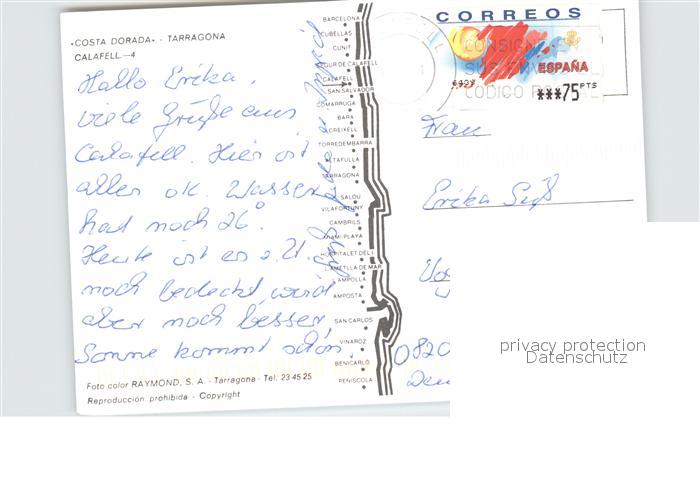 «COSTA DORADA» - TARRAGONA
CALAFELL.—4
Hallo Erika,
viele Grüße aus
Calafell. Hier ist
alles ok. Wasser
hat noch 26°.
Heute ist es z. Zt.
noch bedeckt, wird
aber noch besser
Sonne kommt schon.
Foto color RAYMOND, S. A. - Tarragona - Tel. 23 45 25
Reproducción prohibida - Copyright
BARCELONA
CUBELLAS
CUNIT
SEGUR DE CALAFELL
CALAFELL
SAN SALVADOR
COMARRUGA
BARA
CREIXELL
TORREDEMBARRA
ALTAFULLA
TARRAGONA
SALOU
VILAFORTUNY
CAMBRILS
MIAMI-PLAYA
HOSPITALET DEL I.
L'AMETLLA DE MAR
AMPOLLA
AMPOSTA
SAN CARLOS
VINAROZ
BENICARLO
PEÑISCOLA
CORREOS
ESPAÑA
***75 PTS
CONSIGNE
CODIGO
Frau
Erika Süß
0820
privacy protection
Datenschutz